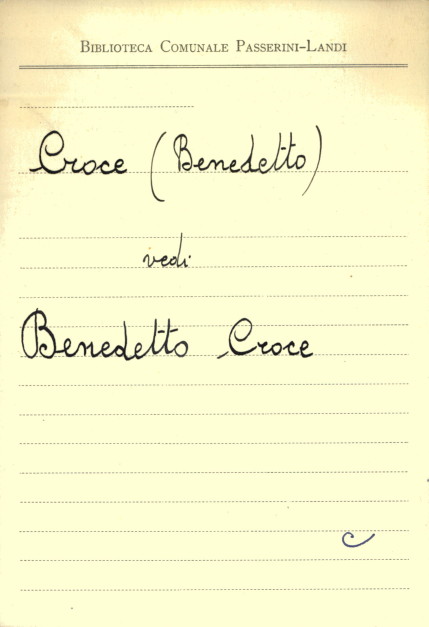 Biblioteca Comunale Passerini-Landi
Croce (Benedetto)
vedi
Benedetto Croce
c